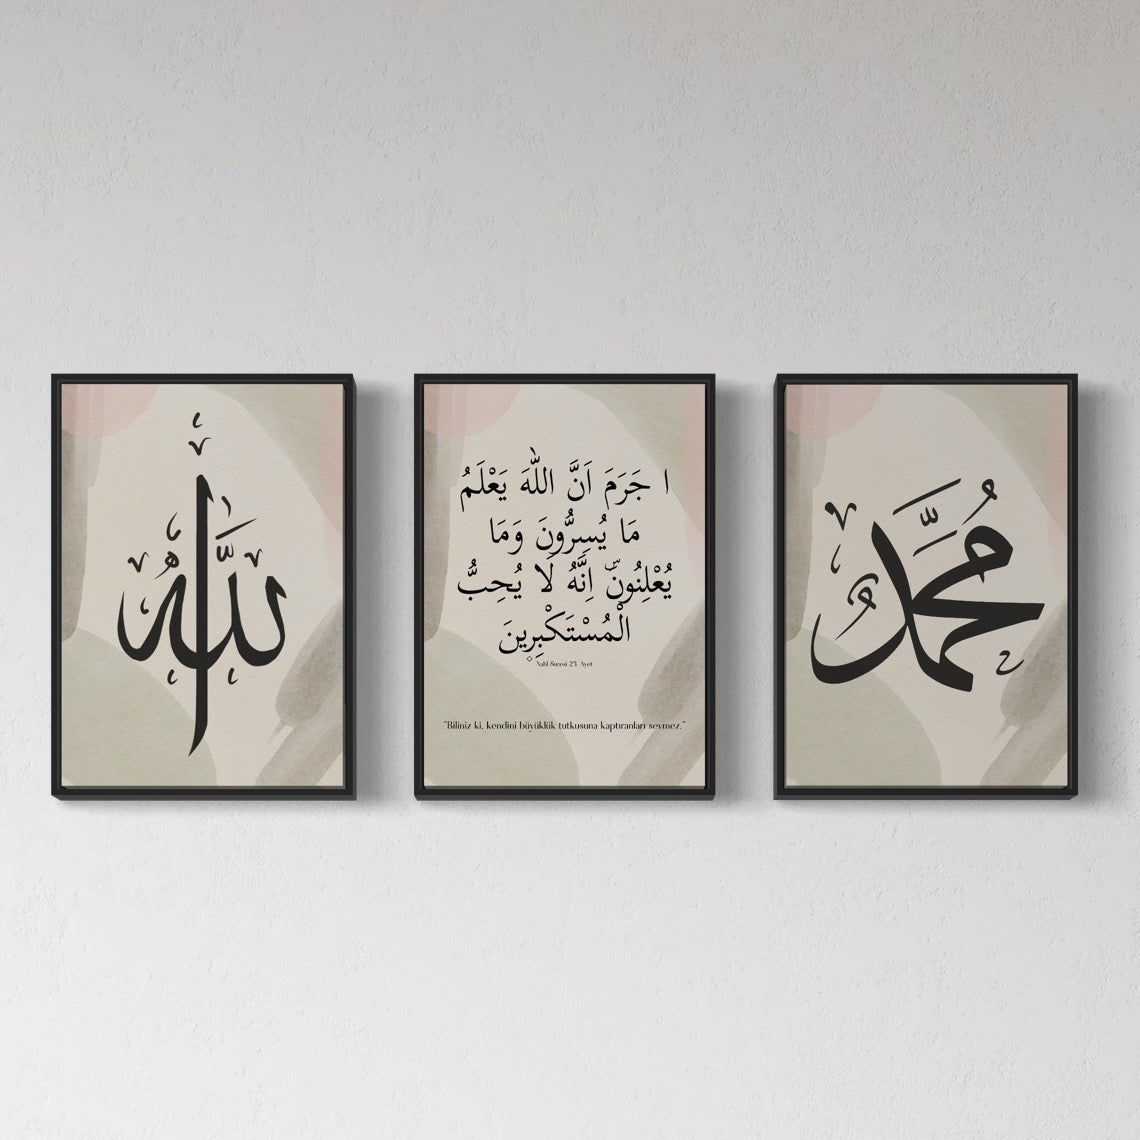 الله
ا جَرَمَ اَنَّ اللّٰهَ يَعْلَمُ
مَا يُسِرُّونَ وَمَا
يُعْلِنُونَۜ اِنَّهُ لَا يُحِبُّ
الْمُسْتَكْبِرِينَ
Nahl Suresi 23. Ayet
"Biliniz ki, kendini büyüklük tutkusuna kaptıranları sevmez."
مُحَمَّد